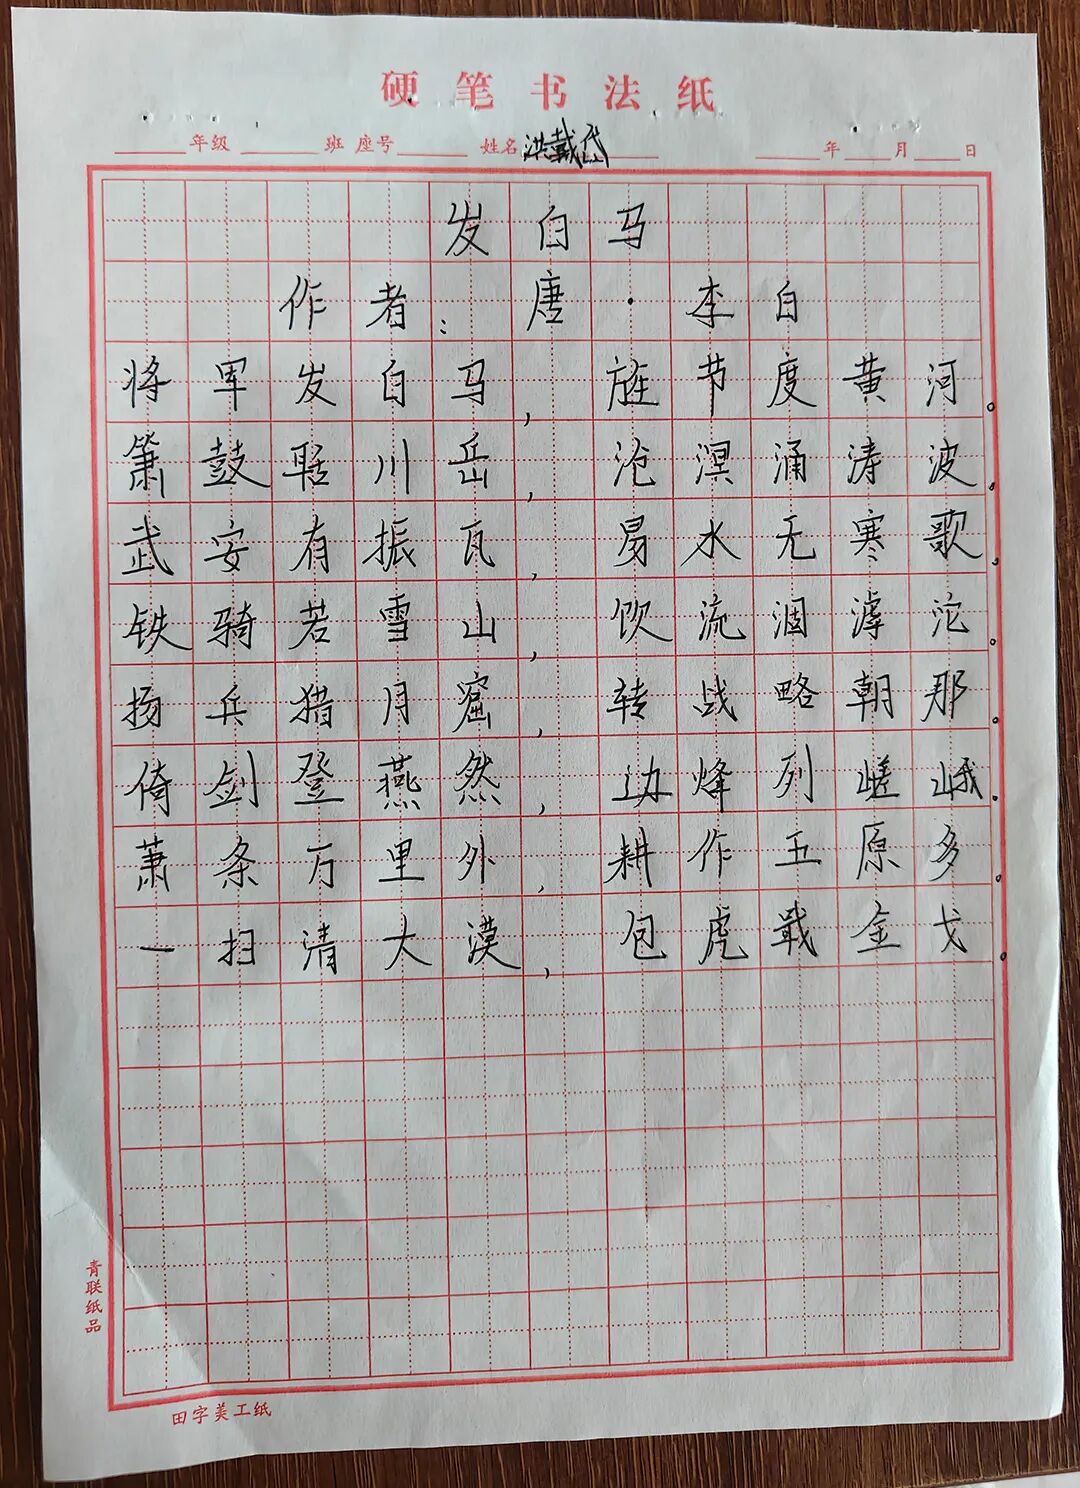 硬笔书法纸
年级 班 座号 姓名 洪戴 年 月 日
发白马
作者：唐·李白
将军发白马，旌节度黄河。
箫鼓聒川岳，沧溟涌涛波。
武安有振瓦，易水无寒歌。
铁骑若雪山，饮流涸滹沱。
扬兵猎月窟，转战略朝那。
倚剑登燕然，边烽列嵯峨。
萧条万里外，耕作五原多。
一扫清大漠，包虎戢金戈。
青联纸品
田字美工纸